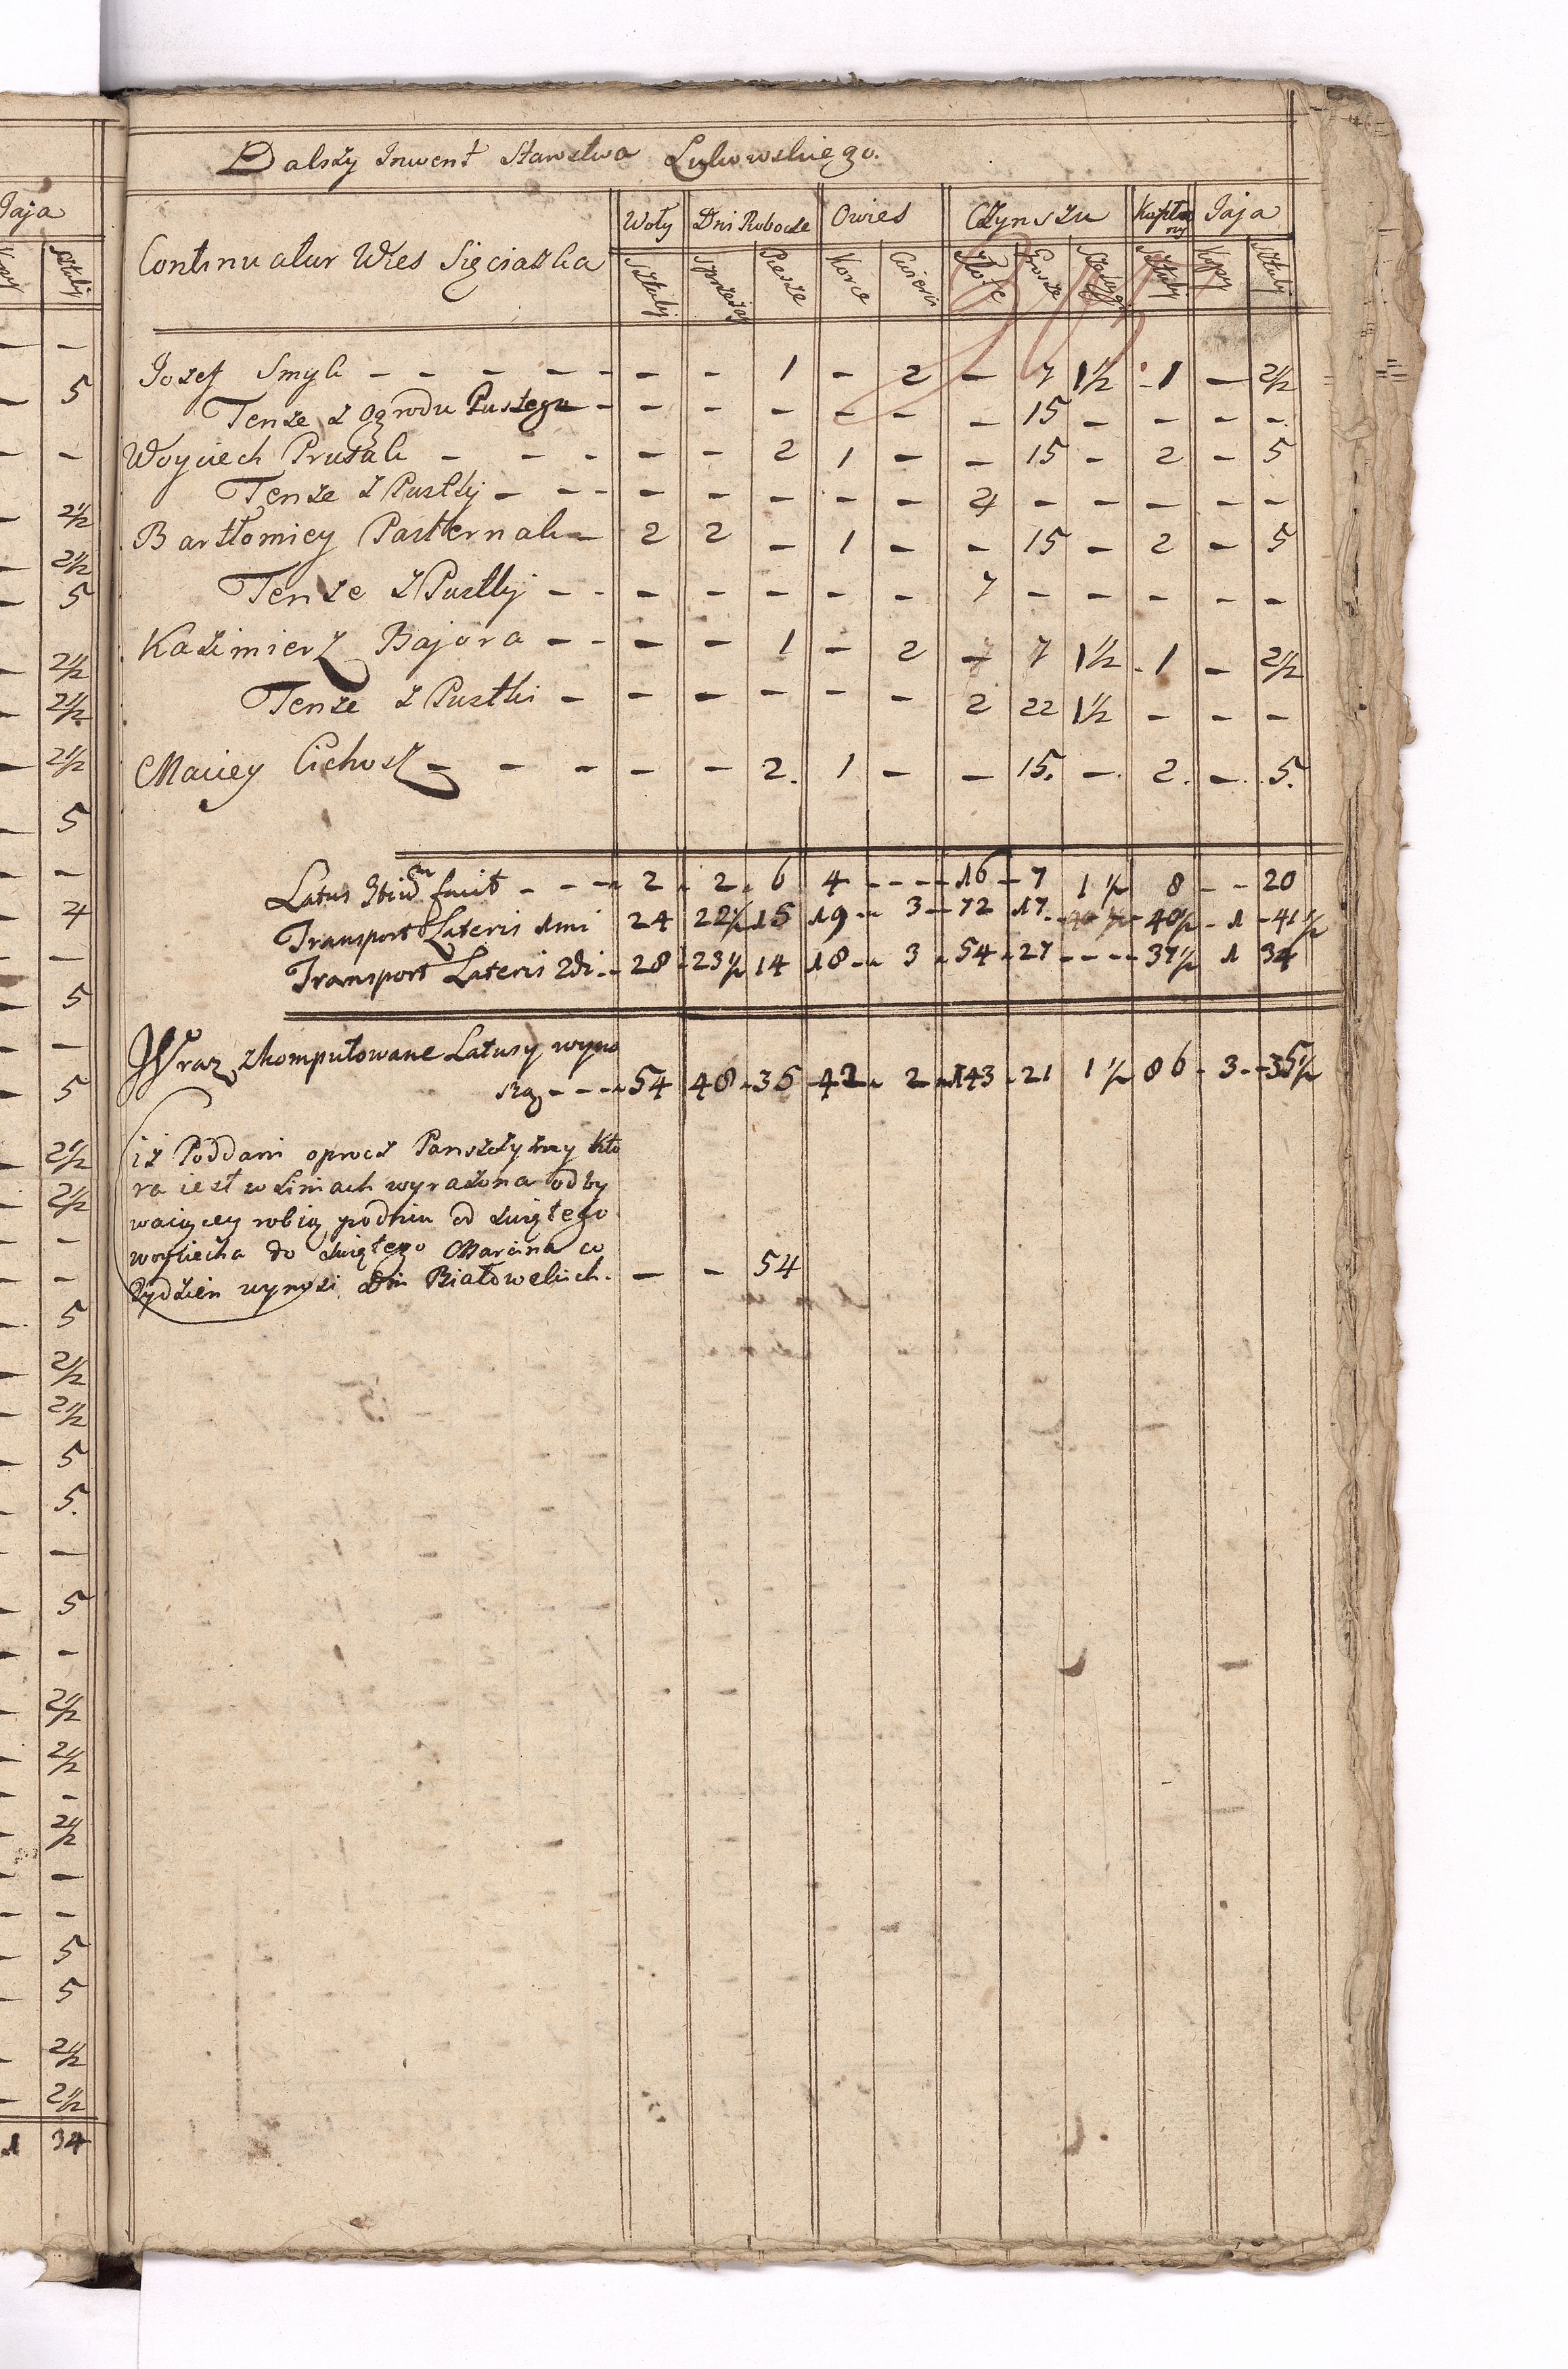 Jaja
Kopy Sztuki
5
2½
2½
5
2½
2½
2½
5
4
5
5
2½
2½
5
2½
2½
5
5.
5
2½
2½
2½
5
5
2½
2½
1 34
Dalszy Inwent Starostwa Łukowskiego.
Continuatur Wies Sięciaszka
Woły Dni Robocze Owies Czynszu Kapłony Jaja
Sztuki Sprzężay Piesze Korce Cwierci Złote Grosze Szelągi Sztuki Kopy Sztuki
Iozef Smyk - - - - - - - 1 - 2 - 7 1½ - 1 - 2½
Tenze z Ogrodu Pustego - - - - - - - 15 - - - -
Woyciech Prusak - - - - - 2 1 - - 15 - 2 - 5
Tenze z Pustky - - - - - - - - 4 - - - - -
Bartłomiey Pasternak - 2 2 - 1 - - 15 - 2 - 5
Tenze z Pustky - - - - - - - 7 - - - - -
Kazimierz Bajora - - - - 1 - 2 - 7 1½ - 1 - 2½
Tenze z Pustki - - - - - - 2 22 1½ - - -
Maciey Cichosz - - - - - 2. 1 - - 15. - 2. - 5.
Latus facit - - - 2 - 2 - 6 4 - - - - 16 - 7 1½ 8 - - 20
Transport Lateris 1mi 24 22½ 15 19 - 3 - 72 17 - 40½ - 1 - 41½
Transport Lateris 2di - 28 - 23½ 14 18 - 3 - 54 - 27 - - - - 37½ 1 34
Wraz zkomputowane Latusy wyno
szą - - - 54 48 - 35 42 - 2 - 143 - 21 1½ 86 - 3 - 35½
iz Poddani oprocz Panszczyzny kto
ra iest w Liniach wyrazona odby
waiącey robią podniu od Swiętego
woyciecha do Swiętego Marcina co
Tydzien wynosi Dni Białowskich. - - 54